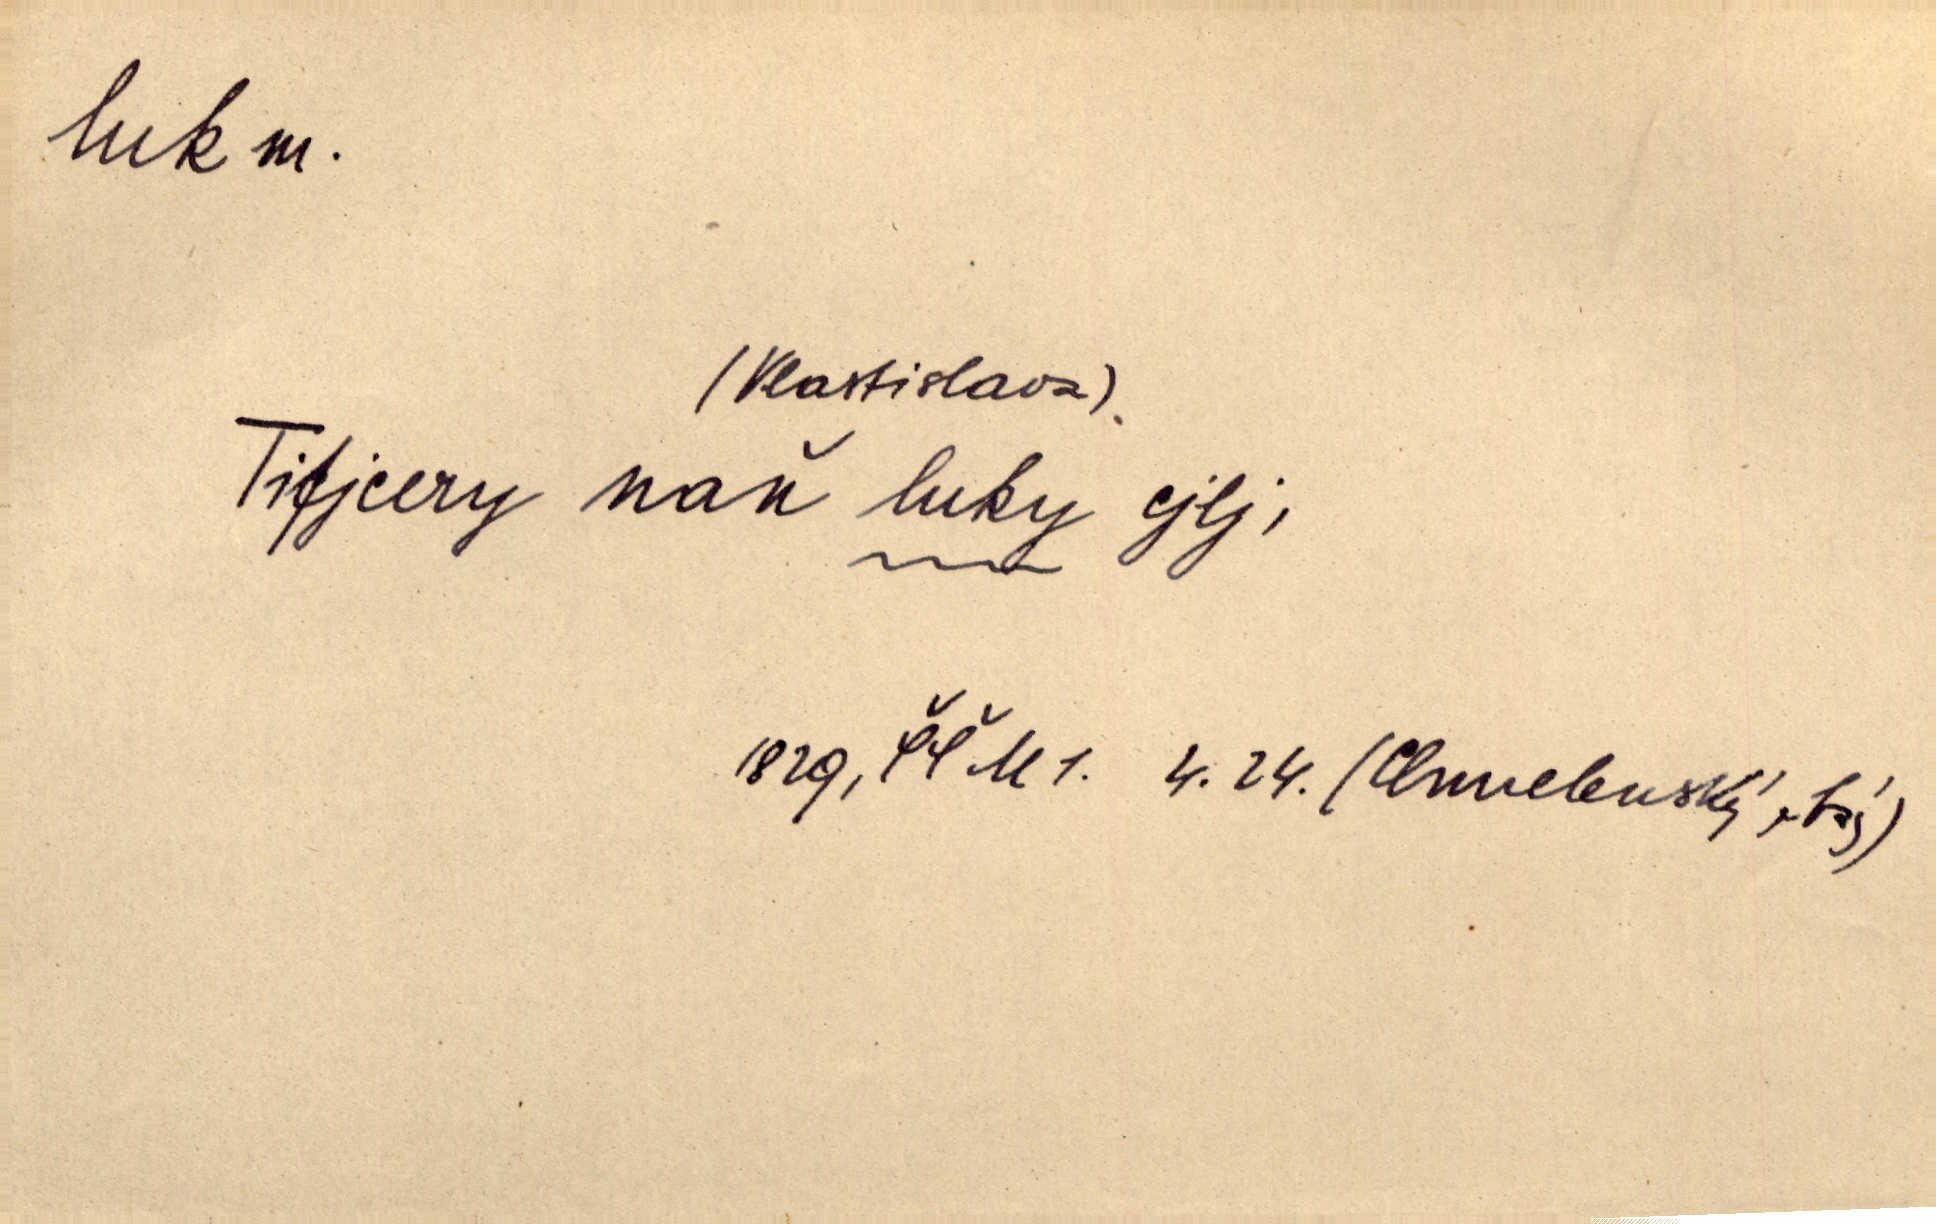 luk m.
(Vlastislava).
Tisjcery naň luky cjlj,
1829, ČČM 1. 4. 24. (Chmelenský,